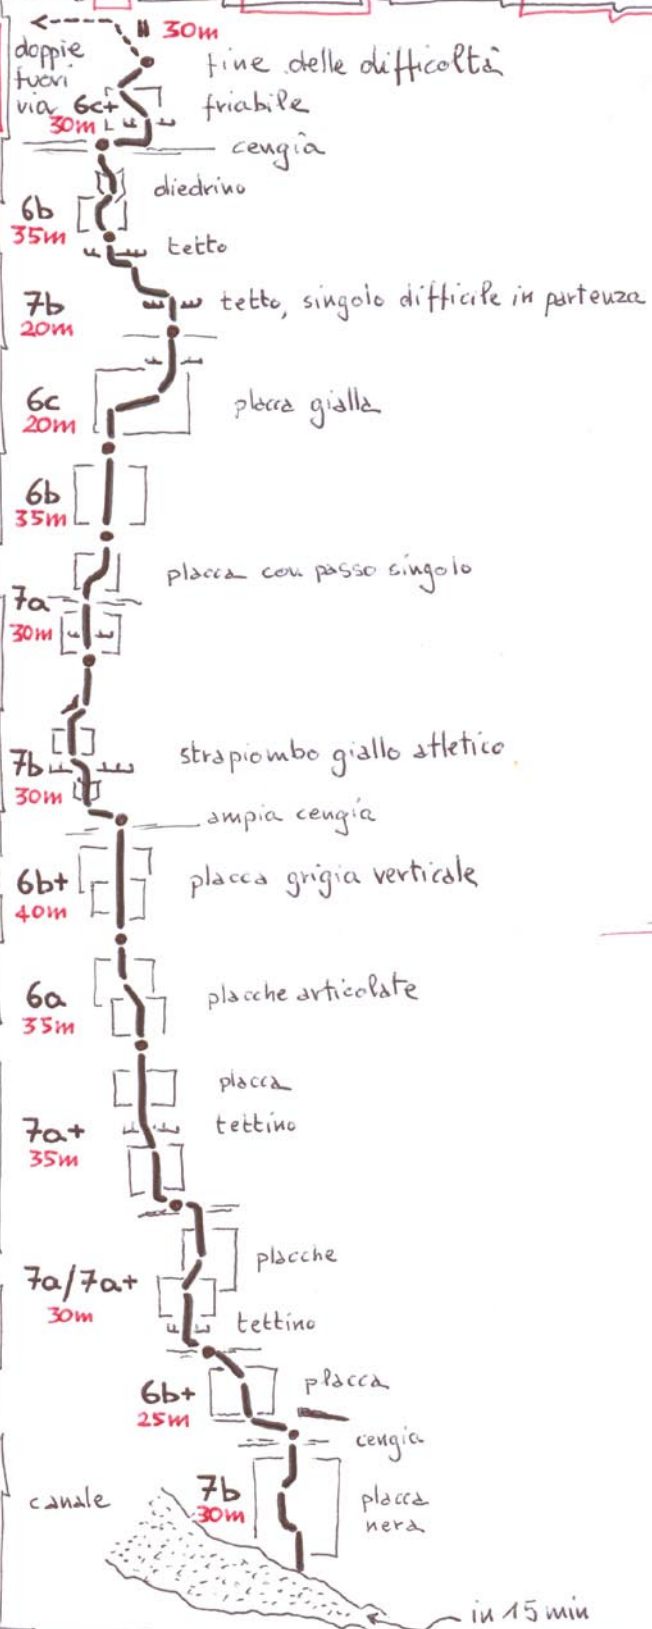 II 30m
doppie
fuori
via
fine delle difficoltà
6c+
30m
friabile
cengia
diedrino
6b
35m
tetto
7b
20m
tetto, singolo difficile in partenza
6c
20m
placca gialla
6b
35m
placca con passo singolo
7a
30m
strapiombo giallo atletico
7b
30m
ampia cengia
6b+
40m
placca grigia verticale
6a
35m
placche articolate
placca
tettino
7a+
35m
placche
7a/7a+
30m
tettino
placca
6b+
25m
cengia
7b
30m
placca
nera
canale
in 15 min